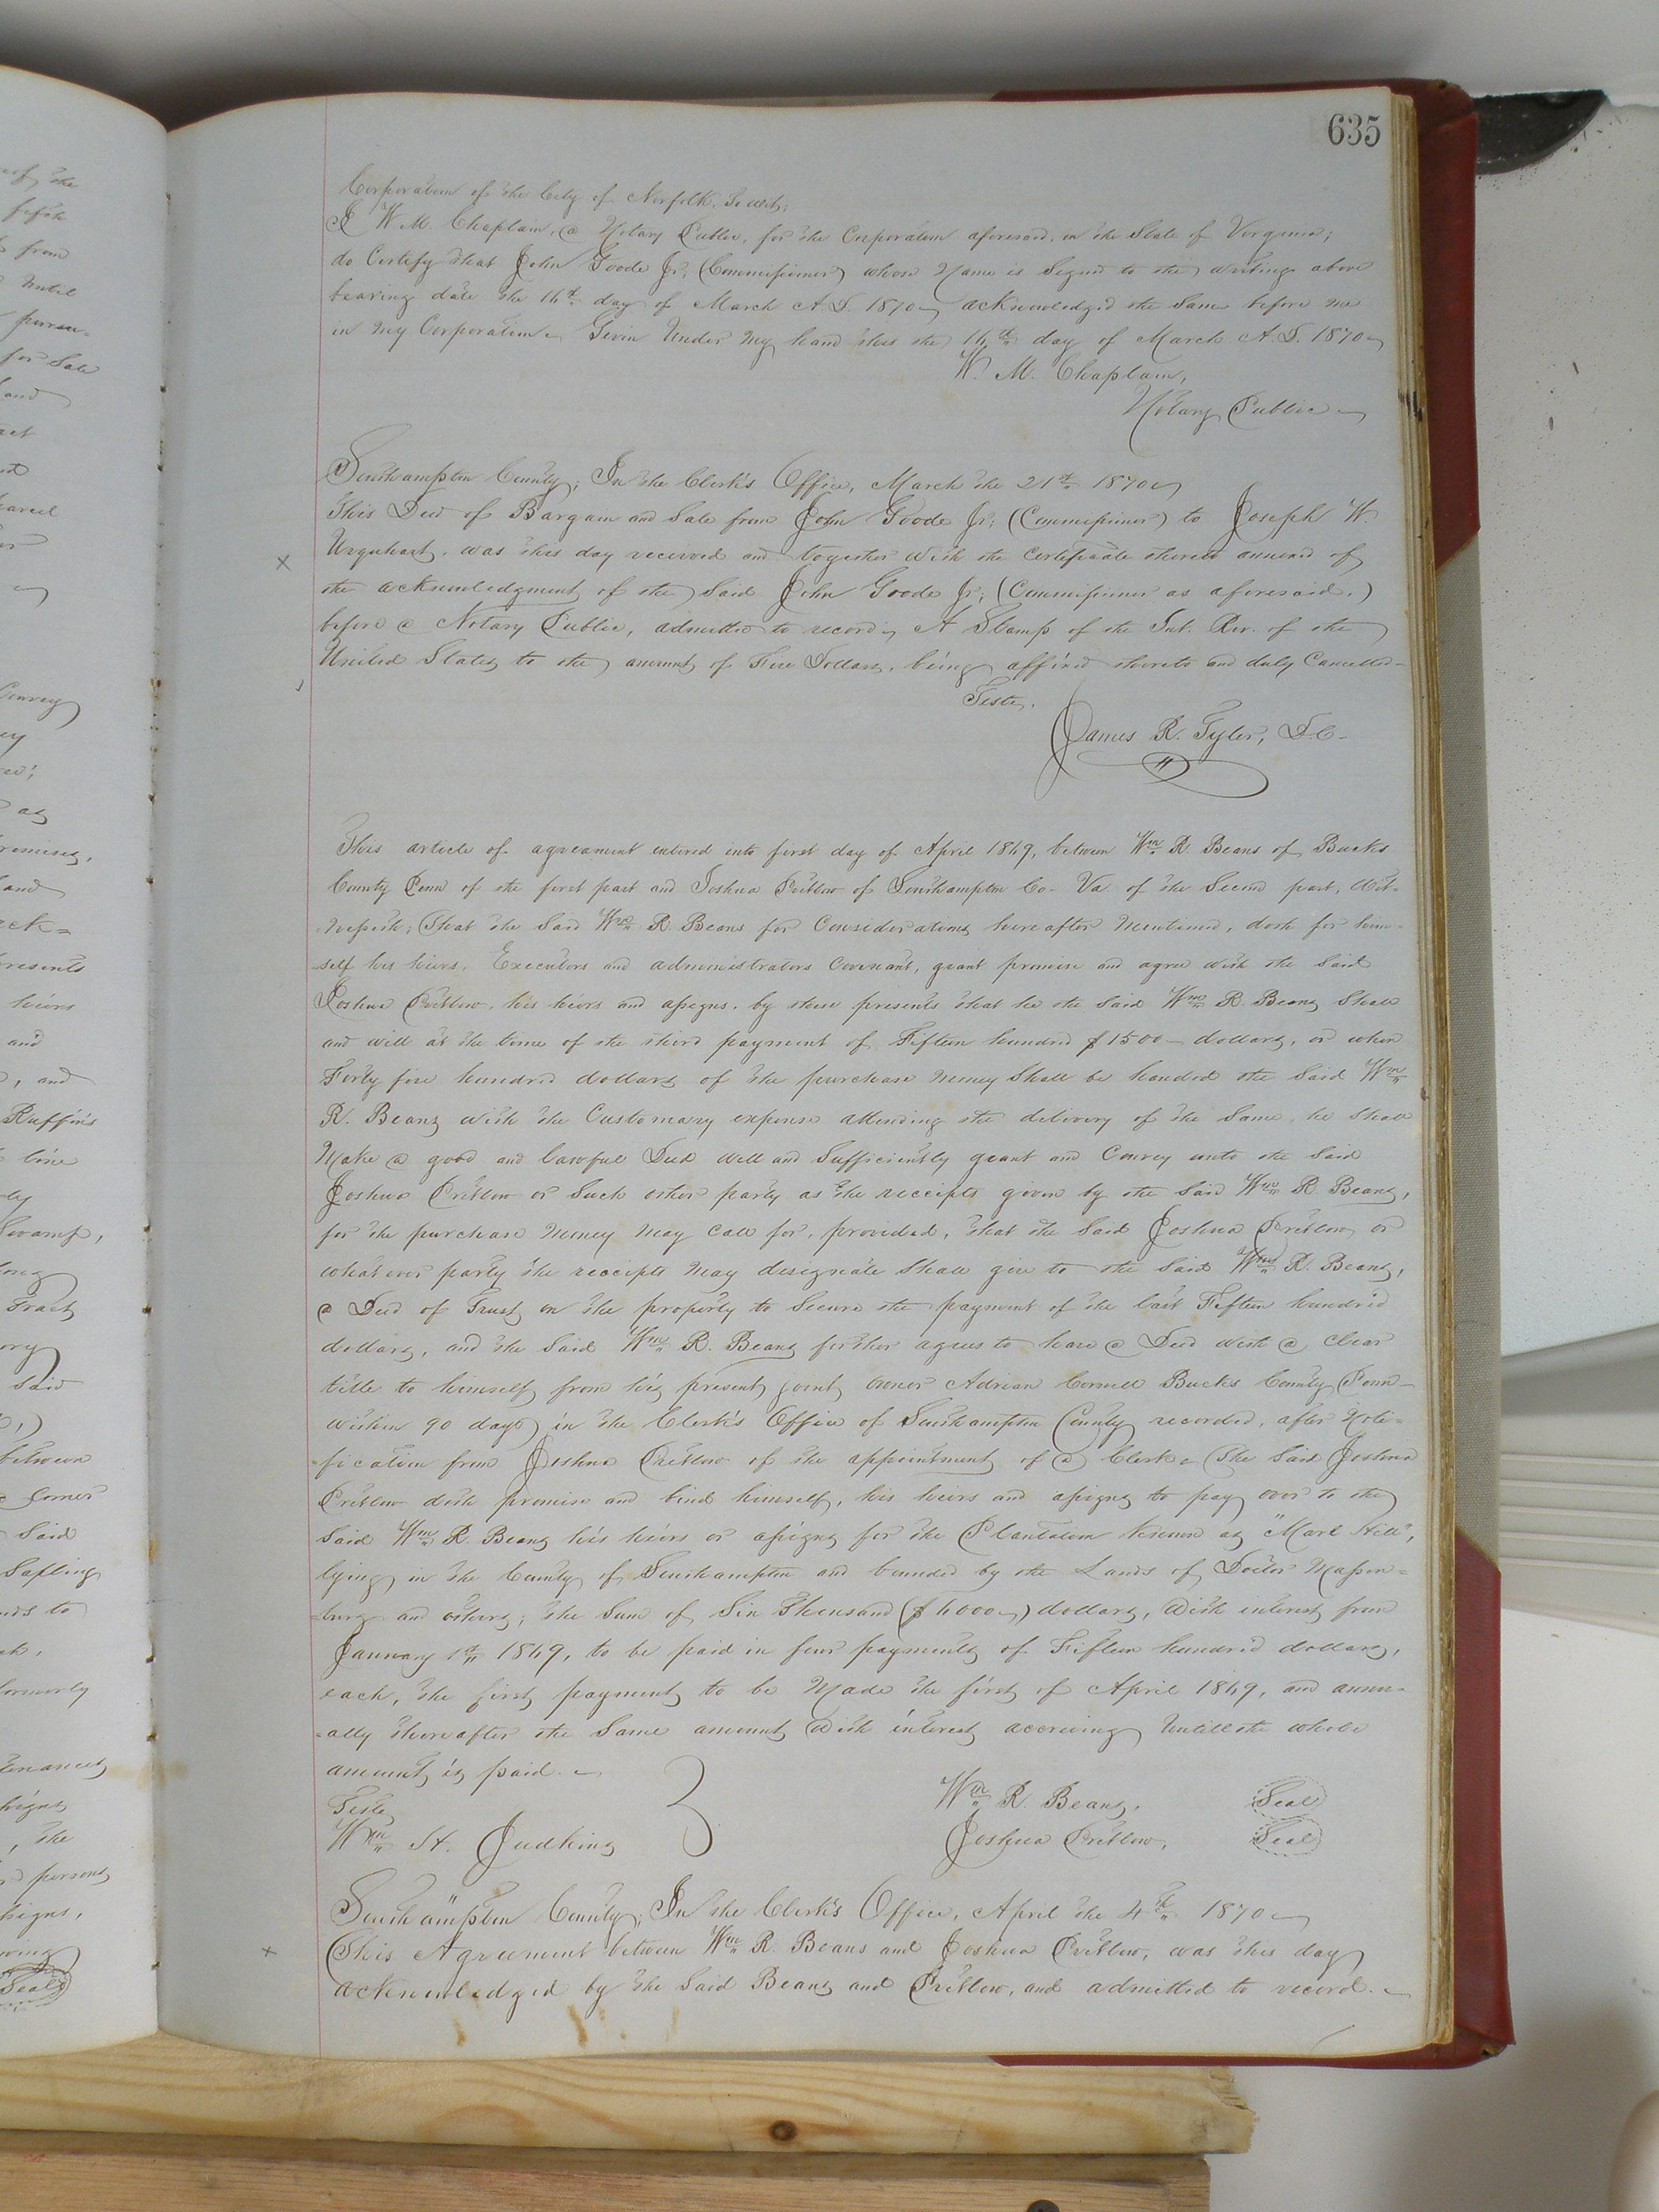 635
Corporation of the City of Norfolk, To wit;
I W. M. Chaplain, a Notary Public, for the Corporation aforesaid, in the State of Virginia;
do Certify that John Goode Jr, (Commissioner) whose Name is Signed to the writing above
bearing date the 16th day of March A.D. 1870 acknowledged the Same before me
in my Corporation. Given Under My hand this the 16th day of March A.D. 1870
W. M. Chaplain,
Notary Public
Southampton County; In the Clerk's Office, March the 21st 1870
This Deed of Bargain and Sale from John Goode Jr; (Commissioner) to Joseph W.
X Urquhart, was this day received and together with the Certificate thereto annexed of
the acknowledgment of the Said John Goode Jr; (Commissioner as aforesaid,)
before a Notary Public, admitted to record. A Stamp of the Int. Rev. of the
United States to the amount of Five Dollars, being affixed thereto and duly Cancelled-
Teste,
James R. Tyler, D.C.
This article of agreament entered into first day of April 1869, between Wm R. Beans of Bucks
County Penn of the first part and Joshua Pretlow of Southampton Co- Va. of the Second part, Wit-
-nesseth; That the Said Wm R. Beans for Considerations hereafter Mentioned, doth for him-
-self his heirs, Executors and administrators Covenant, grant promise and agree with the Said
Joshua Pretlow, his heirs and assigns, by these presents that he the Said Wm R. Beans Shall
and will at the time of the third payment of Fifteen hundred $1500- dollars, or when
Forty five hundred dollars of the purchase Money Shall be handed the Said Wm
R. Beans with the Customary expense attending the delivery of the Same, he Shall
Make a good and lawful Deed well and Sufficiently grant and Convey unto the Said
Joshua Pretlow or Such other party as the receipts given by the Said Wm R. Beans,
for the purchase Money May Call for, provided, that the Said Joshua Pretlow or
whatever party the receipts May designate Shall give to the Said Wm R. Beans,
a Deed of Trust on the property to Secure the payment of the last Fifteen hundred
dollars, and the Said Wm R. Beans further agrees to have a Deed with a Clear
title to himself from his present joint owner Adrian Cornell Bucks County Penn-
within 90 days in the Clerk's Office of Southampton County recorded, after Noti-
-fication from Joshua Pretlow of the appointment of a Clerk. The Said Joshua
Pretlow doth promise and bind himself, his heirs and assigns to pay over to the
Said Wm R. Beans his heirs or assigns for the Plantation Known as "Marl Hill",
lying in the County of Southampton and bounded by the Lands of Doctor Massen-
-burg and others; the Sum of Six Thousand ($6000) dollars, With interest from
January 1st 1869, to be paid in four payments of Fifteen hundred dollars,
each, the first payment to be Made the first of April 1869, and annu-
-ally thereafter the Same amount With interest accruing Untill the whole
amount is paid.
Teste
Wm H. Judkins
Wm R. Beans, Seal
Joshua Pretlow, Seal
Southampton County; In the Clerk's Office, April the 4th 1870
x This Agreement between Wm R. Beans and Joshua Pretlow, was this day
acknowledged by the Said Beans and Pretlow, and admitted to record.